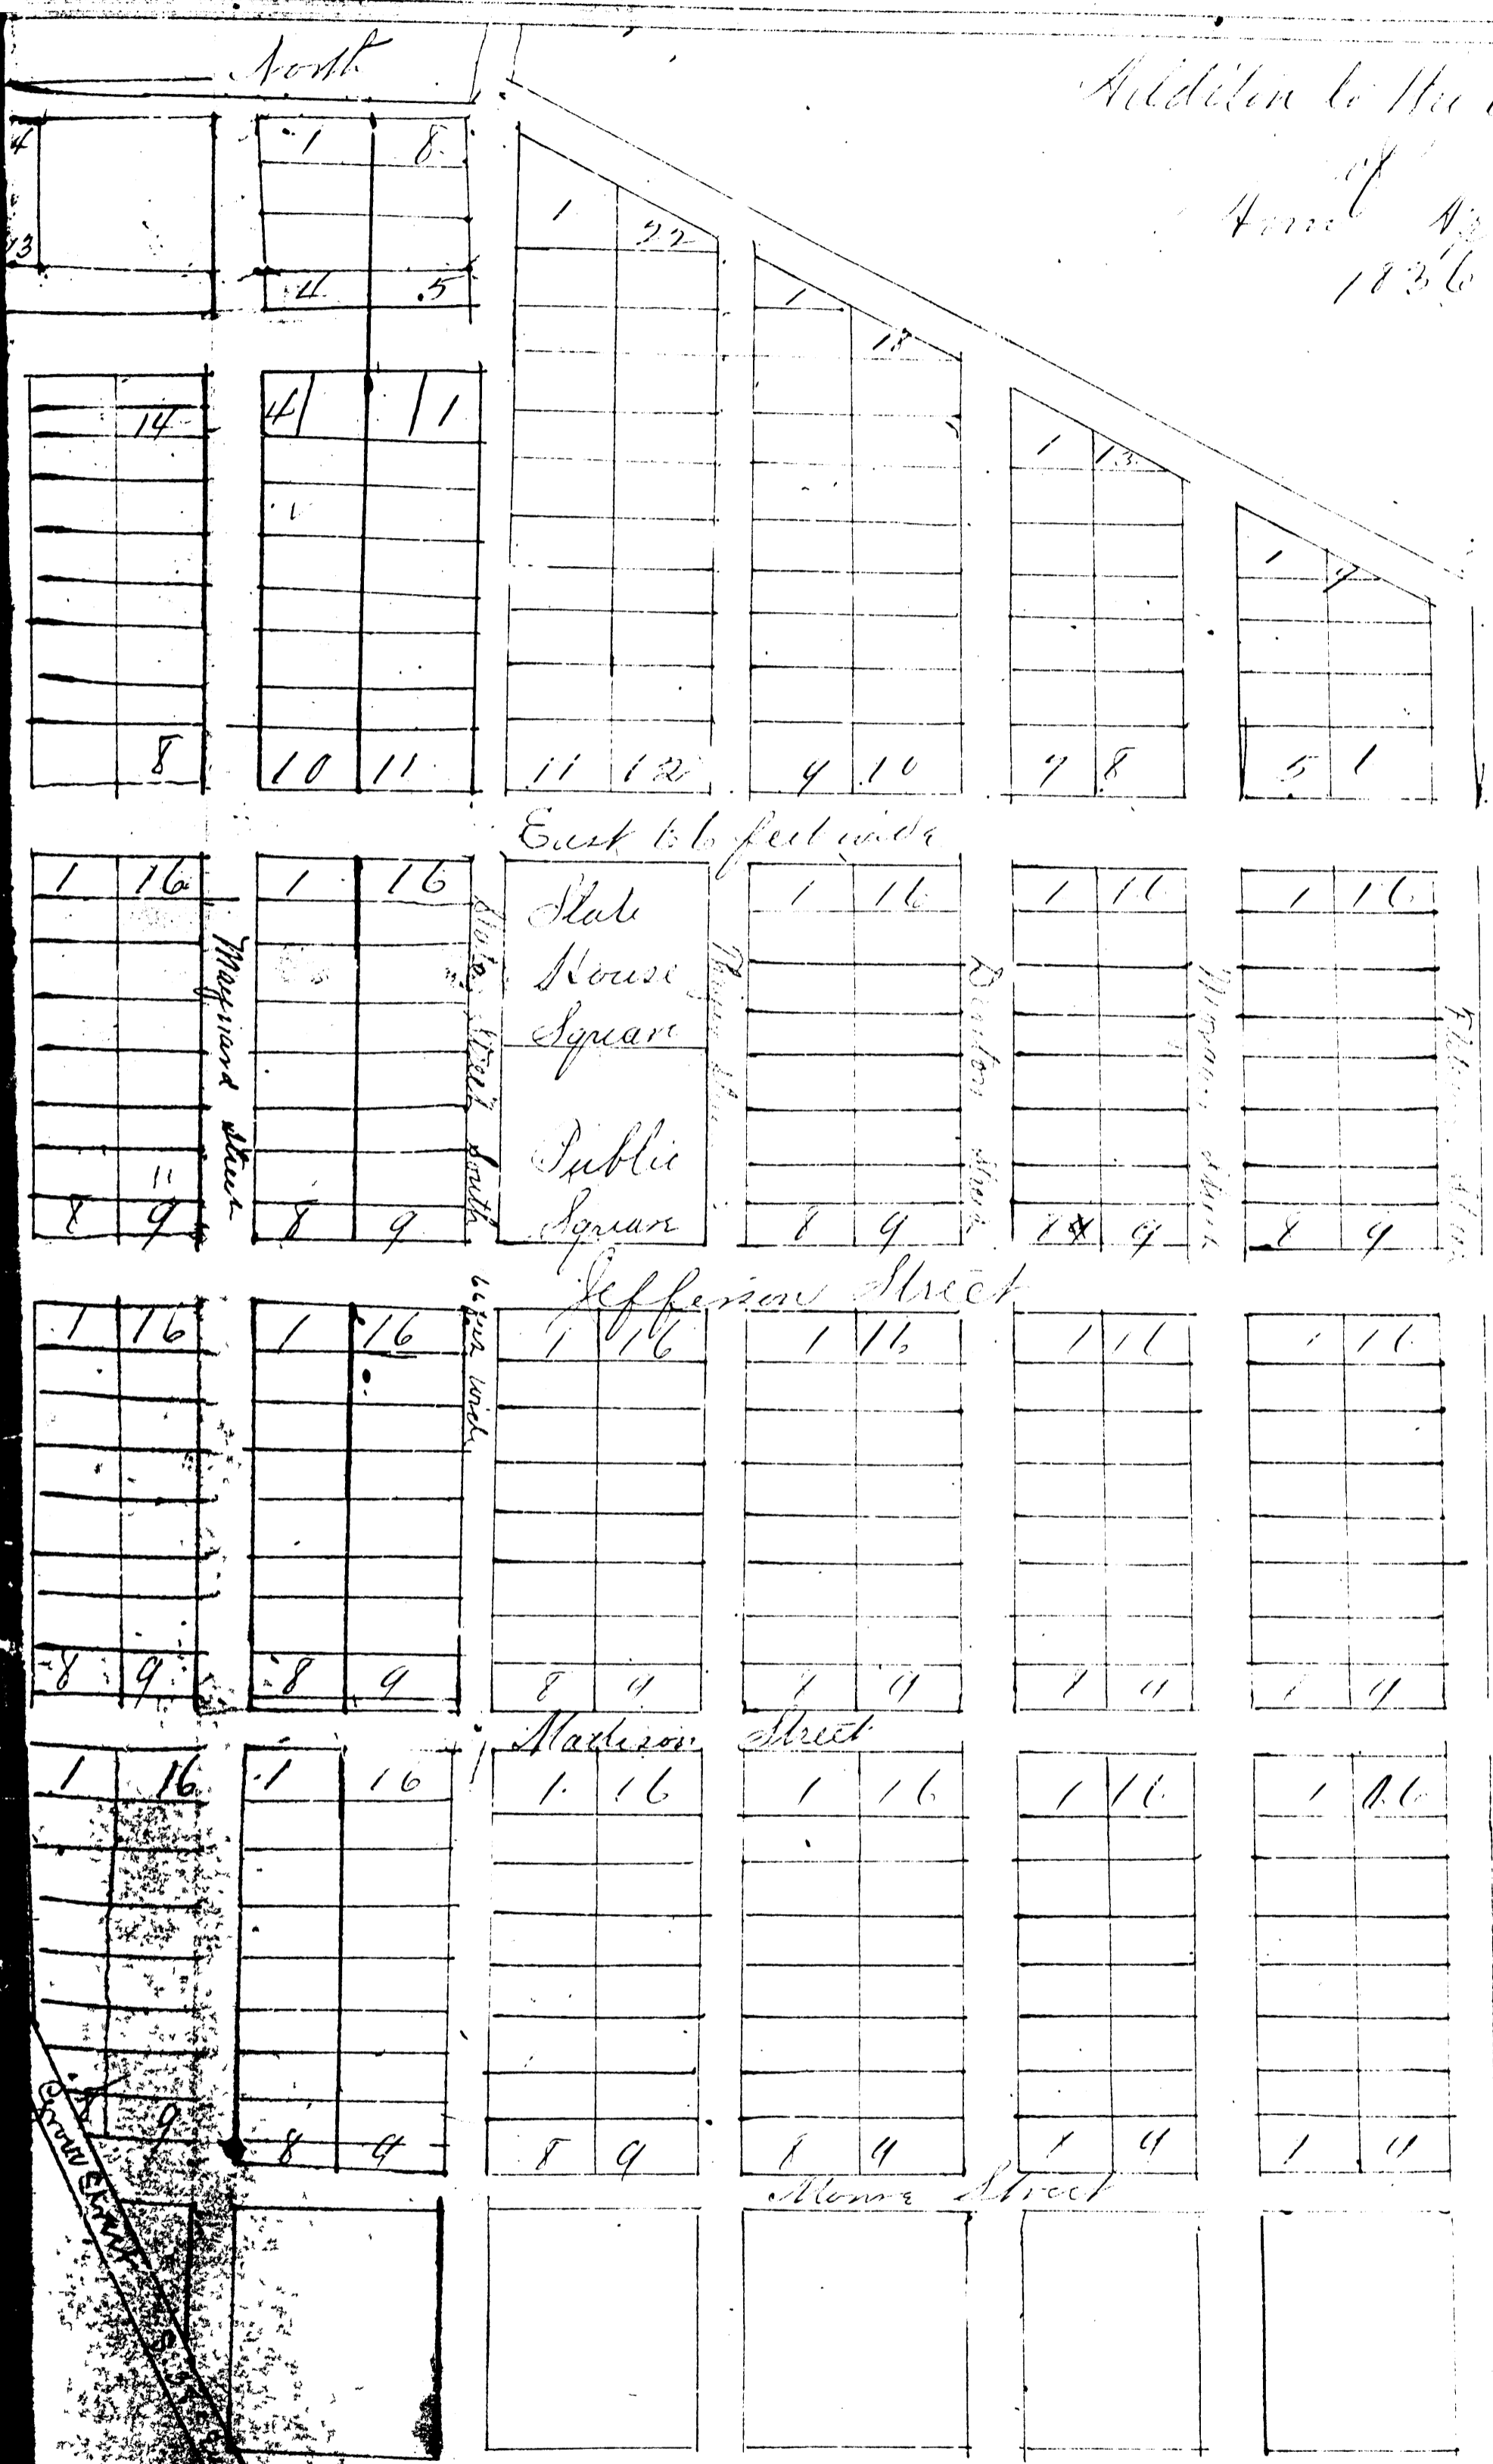 North
Addition to the
of
Ann
1836
4
1 8
13
4 5
1 22
1 18
1 13
1 7
14
4 1
8
10 11
11 12
9 10
7 8
5 1
East 66 feet wide
1 16
1 16
State
House
Square
Public
Square
1 16
1 16
1 16
Maynard Street
State Street South
66 feet wide
Division Street
Street
11
8 9
8 9
8 9
8 9
8 9
Jefferson Street
1 16
1 16
1 16
1 16
1 16
1 16
8 9
8 9
8 9
8 9
8 9
8 9
Madison Street
1 16
1 16
1 16
1 16
1 16
1 16
8 9
8 9
8 9
8 9
8 9
8 9
Monroe Street